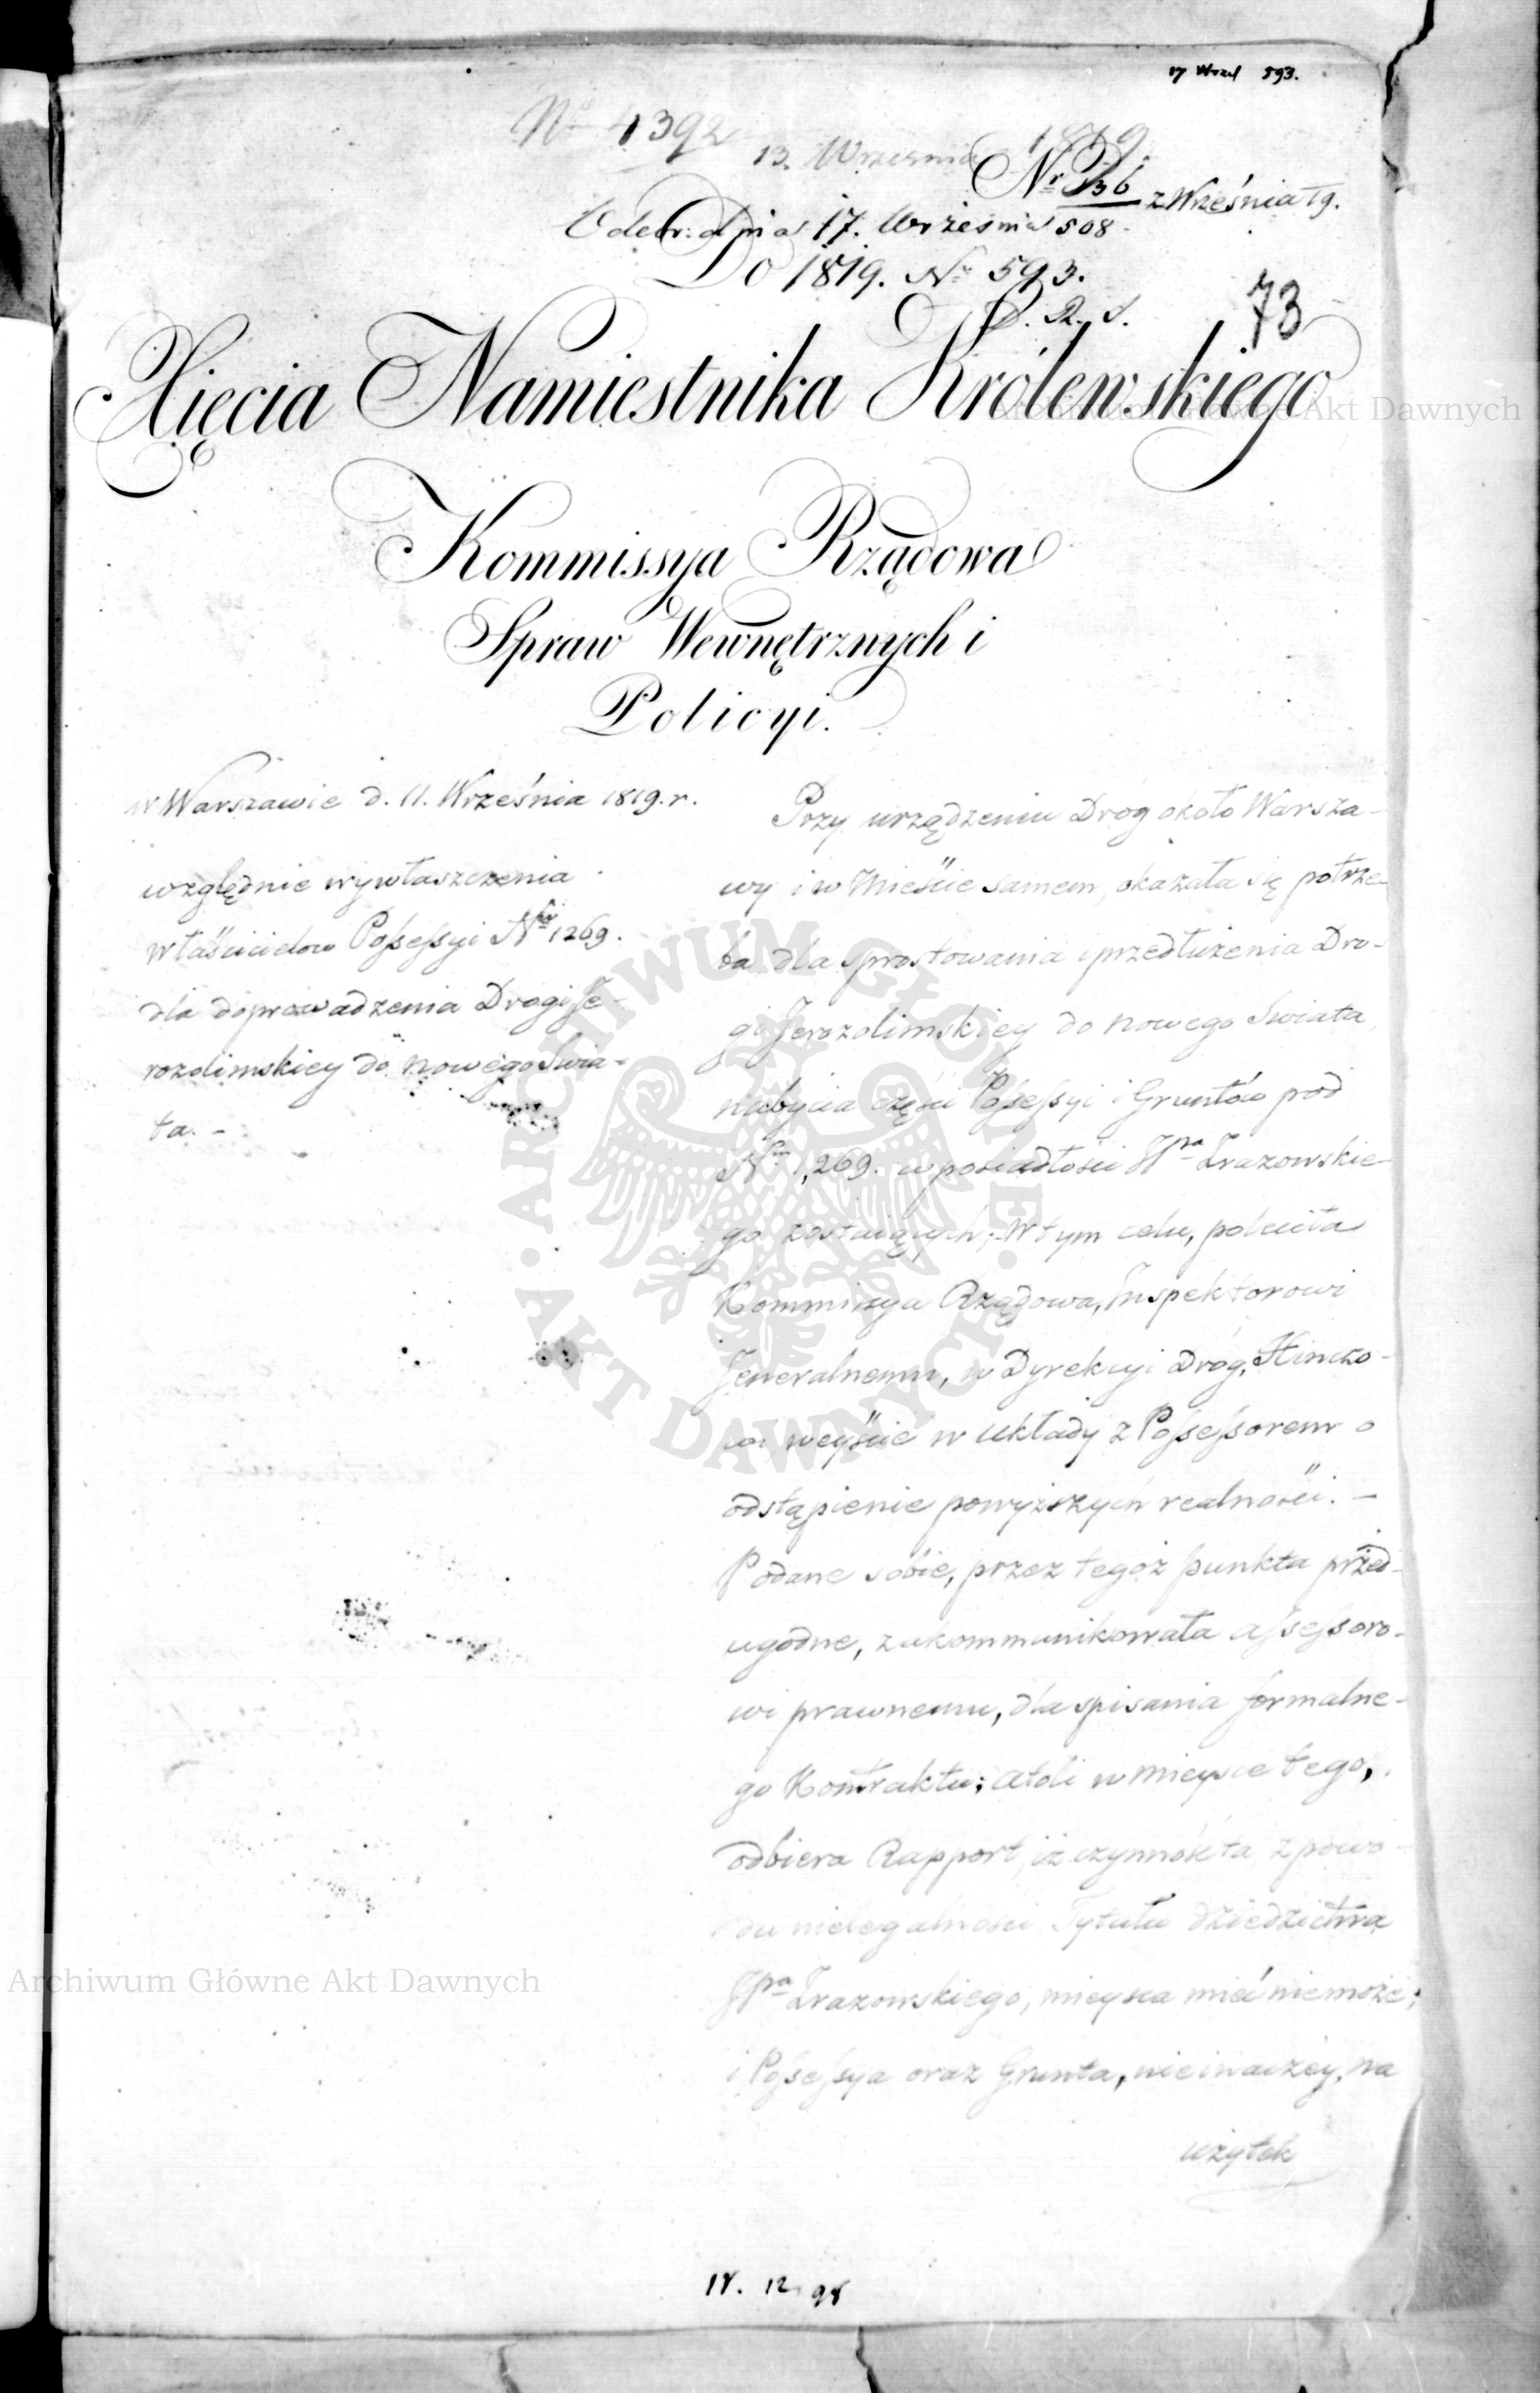 17 Wrzś 593.
No 4392
13. Września 1819.
Nr 736/508 z Września 19.
Odebr: dnia 17. Września
1819. Nr 593.
D. R. S.
Do
73
Xięcia Namiestnika Królewskiego
Kommissya Rządowa
Spraw Wewnętrznych i
Policyi.
w Warszawie d. 11. Września 1819. r.
względnie wywłaszczenia
właścicielow Possessyi Nr 1269.
dla doprowadzenia Drogi Je-
rozolimskiey do nowego Swia-
ta. -
Przy urządzeniu Dróg około Warsza-
wy i w Mieście samem, okazała się potrze-
ba dla sprostowania i przedłużenia Dro-
gi Jerozolimskiey do nowego Swiata,
nabycia części Possessyi i Gruntów pod
Nrm 1,269. w posiadłości JPa Zrazowskie-
go zostaiących; w tym celu, poleciła
Kommissya Rządowa, Inspektorowi
Jeneralnemu, w Dyrekcyi Dróg, Hincz-
wi weyście w układy z Possessorem o
odstąpienie powyższych realności. -
Podane sobie, przez tegoż punkta przed-
ugodne, zakommunikowała assessoro-
wi prawnemu, dla spisania formalne-
go Kontraktu; atoli w mieysce tego,
odbiera Rapport, iż czynność ta z powo-
du nielegalności Tytułu dziedzictwa
JPa Zrazowskiego, mieysca mieć niemoże;
i Possessya oraz Grunta, nieinaczéy, na
użytek
18. 12 98
ARCHIWUM GŁÓWNE · AKT DAWNYCH ·
Archiwum Główne Akt Dawnych
Archiwum Główne Akt Dawnych